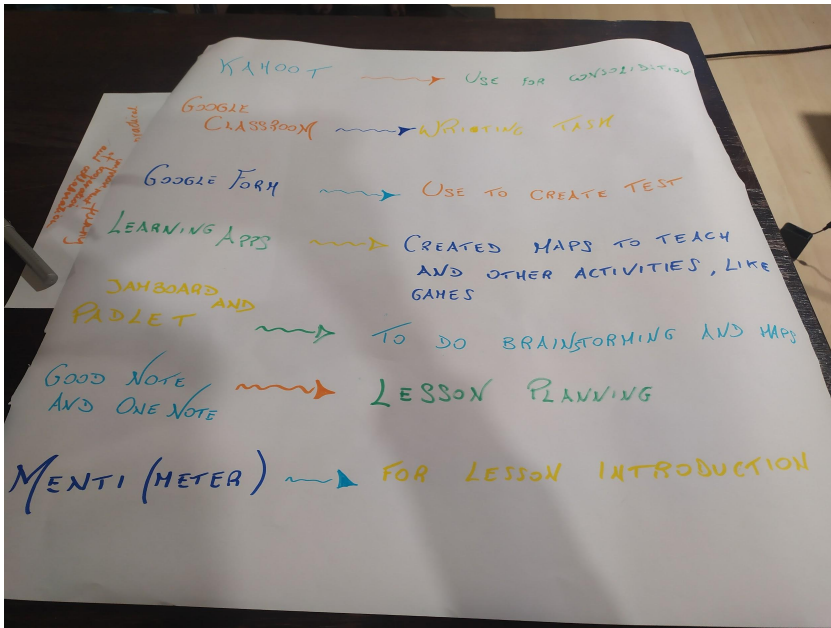 KAHOOT → USE FOR CONSOLIDATION
GOOGLE
CLASSROOM → WRIOTING TASK
GOOGLE FORM → USE TO CREATE TEST
LEARNING APPS → CREATED MAPS TO TEACH
AND OTHER ACTIVITIES, LIKE
GAMES
JAMBOARD AND
PADLET → TO DO BRAINSTORMING AND MAPS
GOOD NOTE
AND ONE NOTE → LESSON PLANNING
MENTI (METER) → FOR LESSON INTRODUCTION